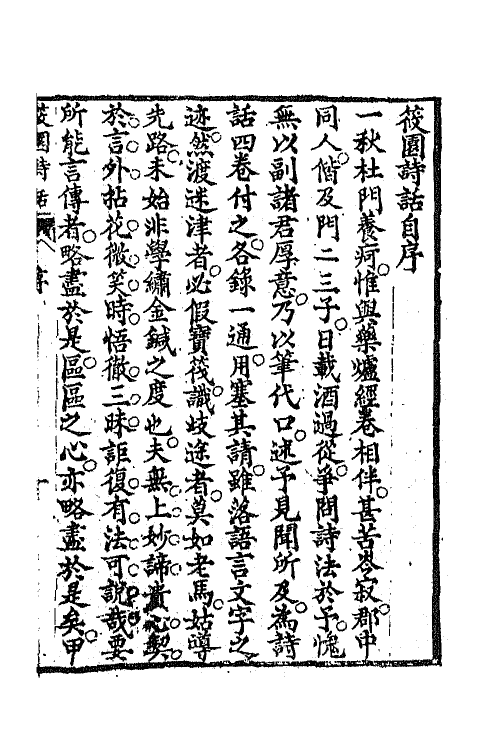 筱園詩話自序
一秋杜門養疴惟與藥爐經卷相伴甚苦岑寂郡中
同人偕及門二三子日載酒過從爭問詩法於予愧
無以副諸君厚意乃以筆代口述予見聞所及為詩
話四卷付之各錄一通用塞其請雖落語言文字之
迹然渡迷津者必假寶筏識歧途者莫如老馬姑導
先路未始非學繡金鍼之度也夫無上妙諦貴心契
於言外拈花微笑時悟徹三昧詎復有法可說哉要
所能言傳者略盡於是區區之心亦略盡於是矣甲
筱園詩話